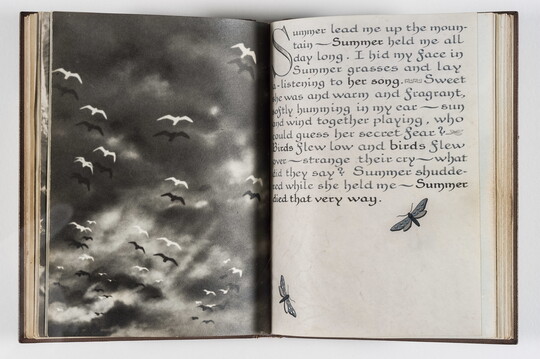 Summer lead me up the moun-
tain — Summer held me all
day long. I hid my face in
Summer grasses and lay
a-listening to her song. Sweet
she was and warm and fragrant,
softly humming in my ear — sun
and wind together playing, who
could guess her secret fear?
Birds flew low and birds flew
over — strange their cry — what
did they say? Summer shudde-
red while she held me — Summer
died that very way.